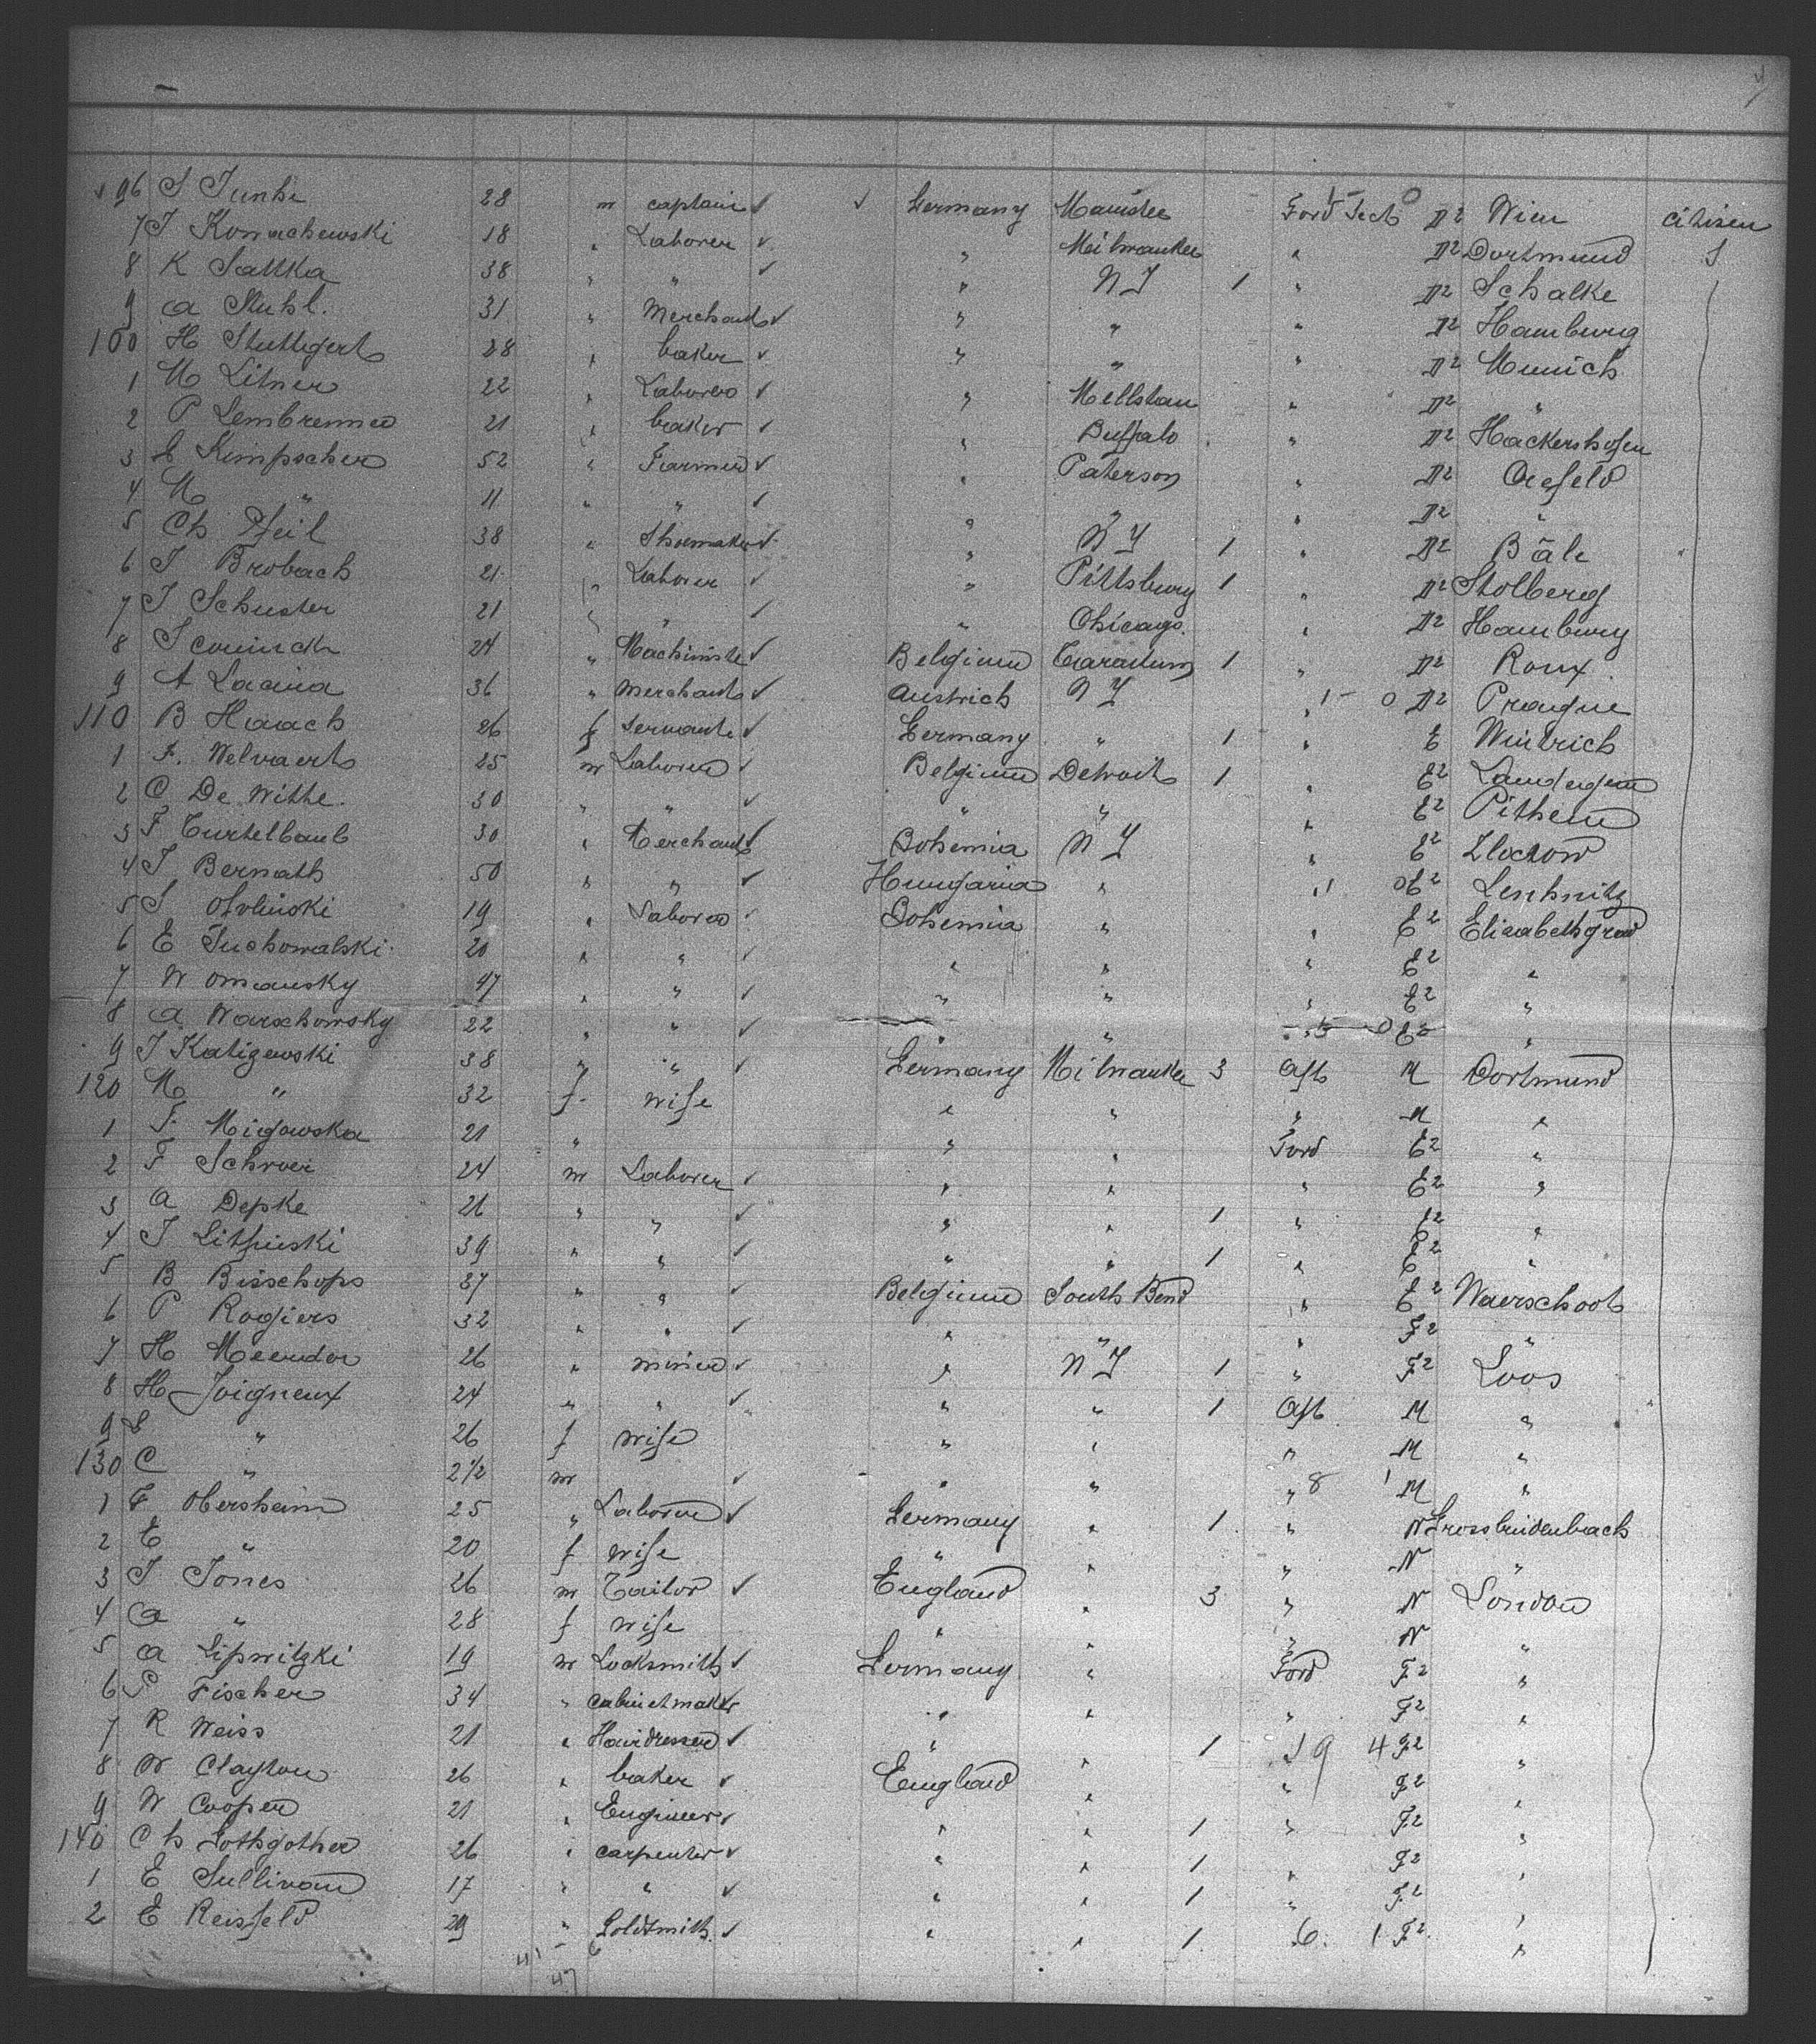 96 S Junke 28 m captain ✓ ✓ Germany Manistee Ford Deck 0 D2 Wien citisen
7 J Kowachewski 18 " Laborer ✓ " Milwaukee " D2 Dortmund
8 K Sattka 38 " " ✓ " N Y 1 " D2 Schalke
9 a Stuhl. 31 " Merchant ✓ " " " D2 Hamburg
100 H Stuttgert 28 " baker ✓ " " " D2 Munich
1 M Litner 22 " Laborer ✓ " " D2 "
2 P 21 " baker ✓ " Buffalo " D2 Hackershofen
3 Kimpscher 52 " Farmer ✓ " Paterson " D2 Crefeld
4 M " 11 " " ✓ " " " D2 "
5 Ch Pfeil 38 " Shoemaker ✓ " N Y 1 " D2 Bâle
6 J Brobach 21 " Laborer ✓ " Pittsburg 1 " D2 Stolberg
7 J Schuster 21 " " ✓ " Chicago. " D2 Hamburg
8 24 " Machiniste ✓ Belgium 1 " D2 Roux
9 A Lacina 36 " merchant ✓ austrich N Y " 1 0 D2 Prague
110 B Haach 26 f servante ✓ Germany " 1 " E Wintrich
1 F. Welvaert 25 m Laborer ✓ Belgium Detroit 1 " E2 Landegem
2 C De Withe. 30 " " ✓ " " " E2 Pithem
3 F Turtelbaub 30 " Merchant ✓ Bohemia N Y " E2 Zloczow
4 J Bernath 50 " " ✓ Hungaria " " 1 0 E2 Leschnitz
5 S 19 " Laborer ✓ Bohemia " " E2 Elisabethgrad
6 E Suchowalski 20 " " ✓ " " " E2 "
7 W Omansky 47 " " ✓ " " " E2 "
8 a Warschowsky 22 " " ✓ " " " 5 0 E2 "
9 J Kaligewski 38 " " ✓ Germany Milwaukee 3 Aft M Dortmund
120 M " 32 f wife " " " M "
1 F. Migowska 21 " " " Ford E2 "
2 F Schroer 24 m Laborer ✓ " " " E2 "
3 a Depke 26 " " ✓ " " 1 " E2 "
4 J 39 " " ✓ " " 1 " E2 "
5 B Bisschops 37 " " ✓ Belgium South Bend " E2 Waerschoot
6 P Rogiers 32 " " ✓ " " " F2 "
7 H 26 " miner ✓ " N Y 1 " F2 Loos
8 H Joigneux 24 " " ✓ " " 1 Aft M "
9 " 26 f wife " " " M "
130 C " 2½ m ✓ " " " 8 1 M "
1 F Obersheim 25 " Laborer ✓ Germany " 1 " N
2 E " 20 f wife " " " N "
3 J Jones 26 m Tailor ✓ England " 3 " N London
4 a " 28 f wife " " " N "
5 a Lipwitzki 19 m Locksmith ✓ Germany " Ford F2 "
6 S Fischer 34 " cabinetmaker ✓ " " " F2 "
7 R Weiss 21 " Hairdresser ✓ " " 1 19 4 F2 "
8 W Clayton 26 " baker ✓ England " " F2 "
9 W Cooper 21 " Engineer ✓ " " 1 " F2 "
140 Ch Gothgother 26 " carpenter ✓ " " 1 " F2 "
1 E Sullivan 17 " " ✓ " " 1 " F2 "
2 E Reisfeld 29 " Goldsmith ✓ " " 1 6. 1 F2 "
41 6
47